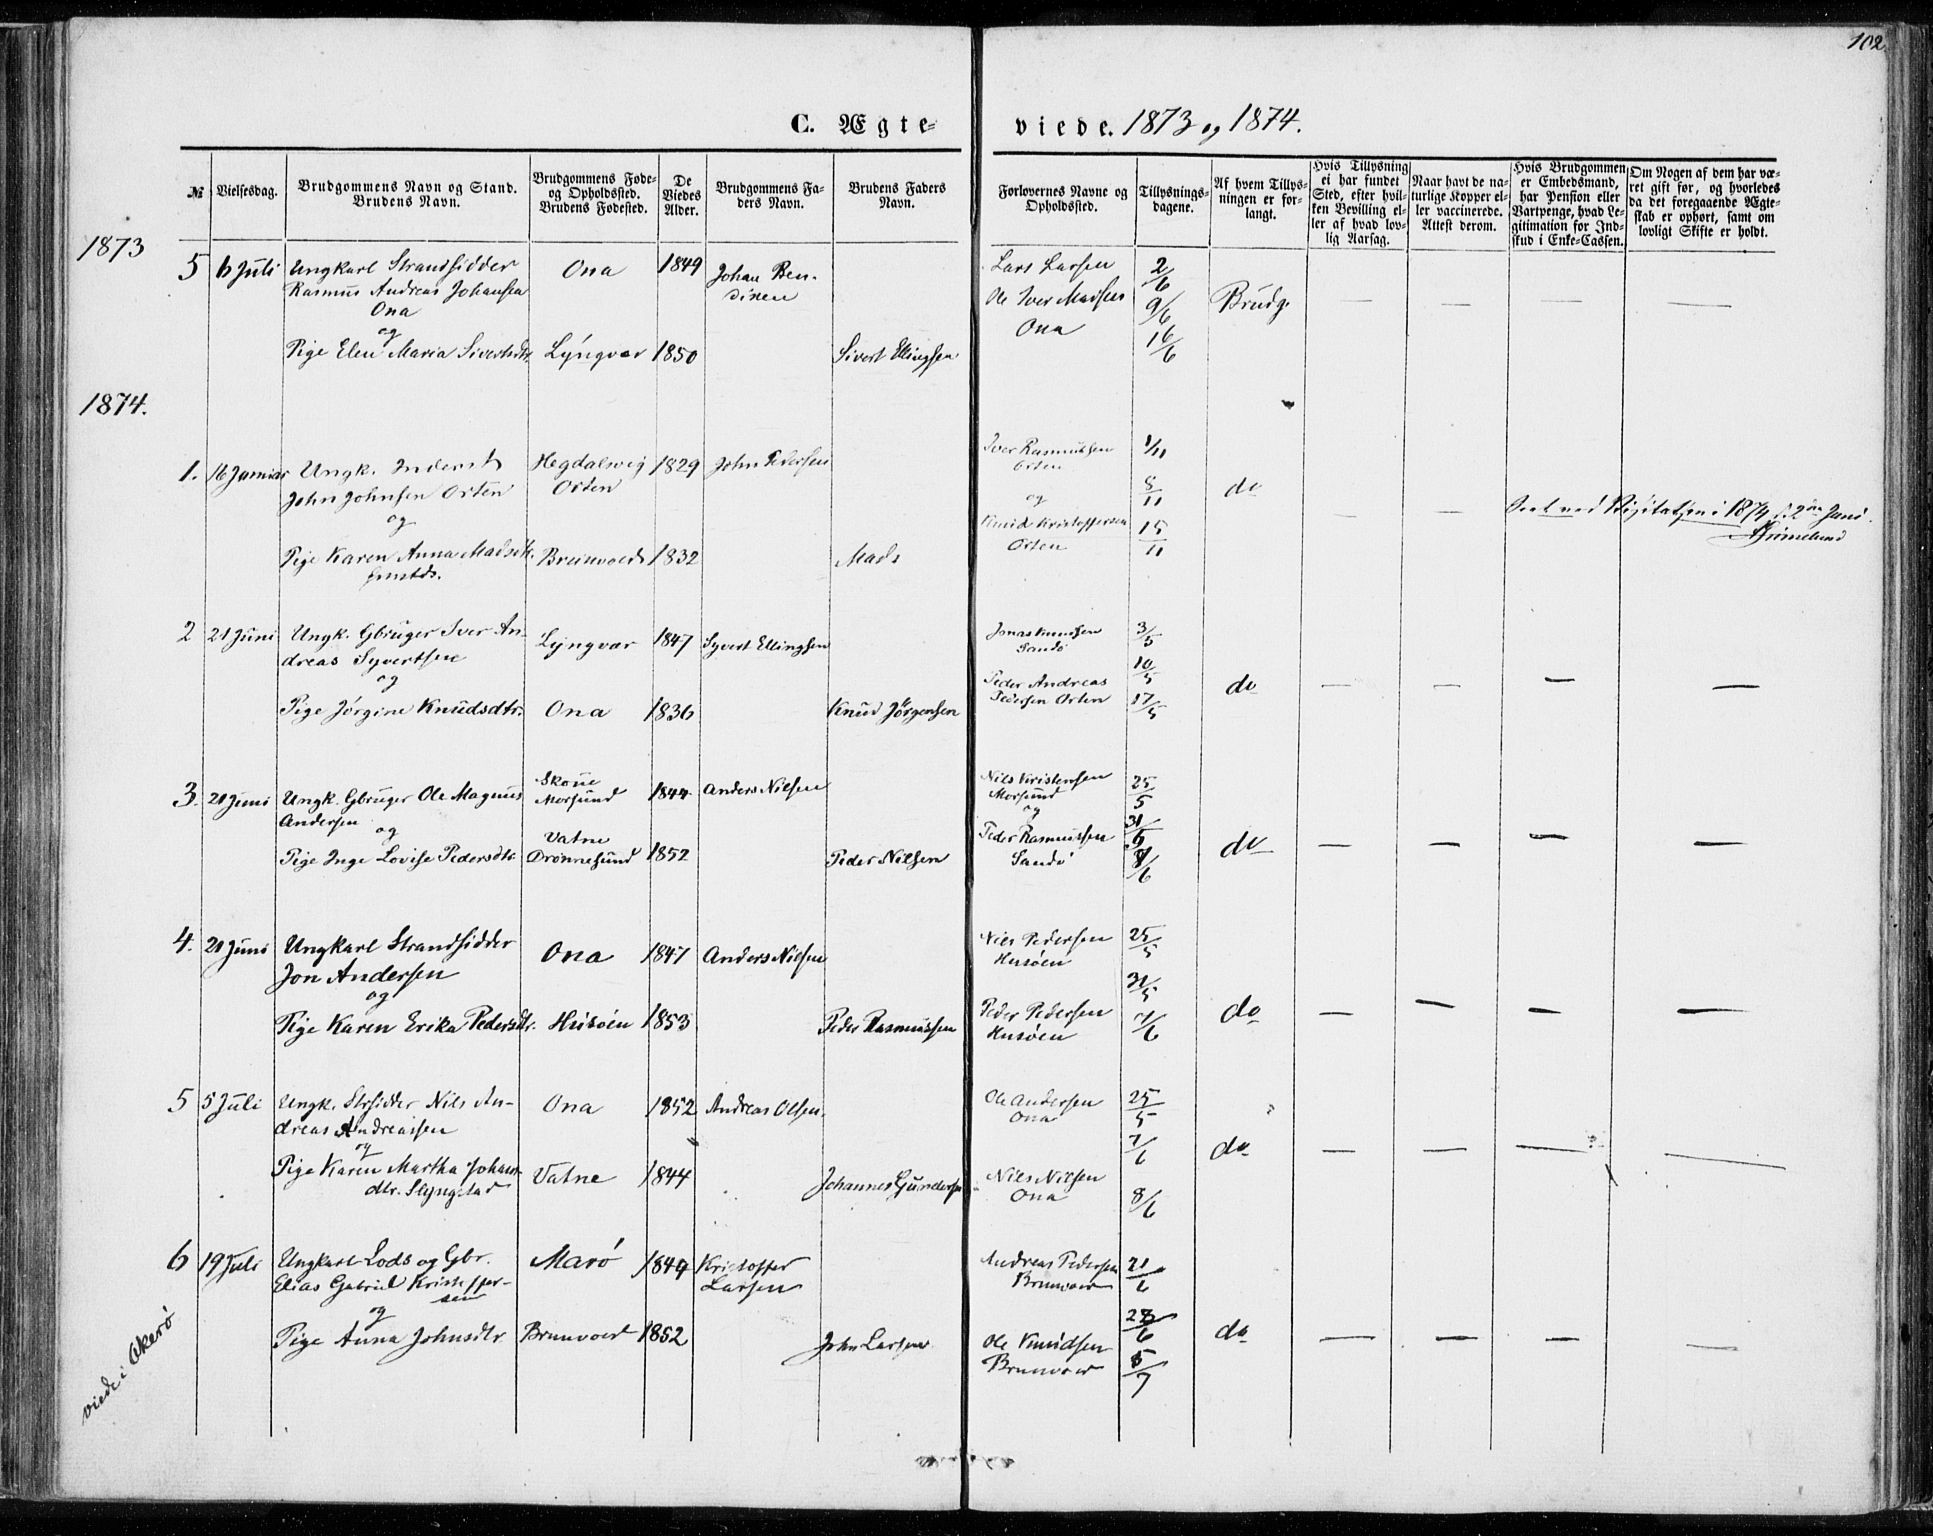 102.
C. Ægte-
viede. 1873 og 1874.
№
Vielsesdag.
Brudgommens Navn og Stand.
Brudens Navn.
Brudgommens Føde-
og Opholdssted.
Brudens Fødested.
De
Viedes
Alder.
Brudgommens Fa-
ders Navn.
Brudens Faders
Navn.
Forlovernes Navne og
Opholdssted.
Tillysnings-
dagene.
Af hvem Tillys-
ningen er for-
langt.
Hvis Tillysning
ei har fundet
Sted, efter hvil-
ken Bevilling el-
ler af hvad lov-
lig Aarsag.
Naar havt de na-
turlige Kopper el-
ler vaccinerede.
Attest derom.
Hvis Brudgommen
er Embedsmand,
har Pension eller
Vartpenge, hvad Le-
gitimation for Ind-
skud i Enke-Cassen.
Om Nogen af dem har væ-
ret gift før, og hvorledes
da det foregaaende Ægte-
skab er ophørt, samt om
lovligt Skifte er holdt.
1873
5 6 Juli Ungkarl Strandsidder Ona 1849 Johan Ben- Lars Larsen 2/6
Rasmus Andreas Johansen dixen Ole Iver Madsen 9/6 Brudg. — — — —
Ona Ona 16/6
og
Pige Elen Maria Sivertsdtr. Lyngvær 1850 Sivert Ellingsen
1874.
1. 16 Januar Ungk. Inderst Hegdalsvig 1829 John Pedersen Iver Rasmussen 1/11
John Johnsen Orten Orten Orten 8/11 do
og og
Knud Kristoffersen 15/11 — — Seet ved Visitatsen i 1874 d. 2den Juni.
Orten
Pige Karen Anna Madsdtr. 1832 Mads
2 21 Juni Ungk. Gbruger Iver An- Lyngvær 1847 Syvert Ellingsen Jonas Knudsen 3/5
dreas Syvertsen Sandø 10/5
og Peder Andreas 17/5 do — — — —
Pige Jørgine Knudsdtr. Ona 1836 Knud Jørgensen Pedersen Orten
3. 21 Juni Ungk. Gbruger Ole Magnus Skone 1844 Anders Nielsen Nils Kristensen 25/5
Andersen Morsund Morsund
og og 31/5
Pige Inge Lovise Pedersdtr Vatne 1852 Peder Nilsen Peder Rasmussen 7/6 do — — — —
Drønnesund Sandø
4. 21 Juni Ungkarl Strandsidder Ona 1847 Anders Nilsen Nils Pedersen 25/5
Jon Andersen Husøen 31/5
og
Pige Karen Erika Pedersdtr. Husøen 1853 Peder Rasmussen Peder Pedersen 7/6 do — — — —
Husøen
5 5 Juli Ungk. Strsidder Nils An- Ona 1852 Andreas Olsen. Ole Andersen 25/5
dreas Andreassen Ona 7/6 do — — — —
og
Pige Karen Martha Johann- Vatne 1844 Johannes Gundersen Nils Nilsen 8/6
dtr. Slyngstad Ona
6 19 Juli Ungkarl Lods og Gbr. Marø 1849 Kristoffer Andreas Pedersen 21/6
Elias Gabriel Kristoffer- Larsen
sen
og 28/6
Pige Anna Johnsdtr. 1852 John Larsen Ole Knudsen 5/7 do — — — —
viede i Akerø